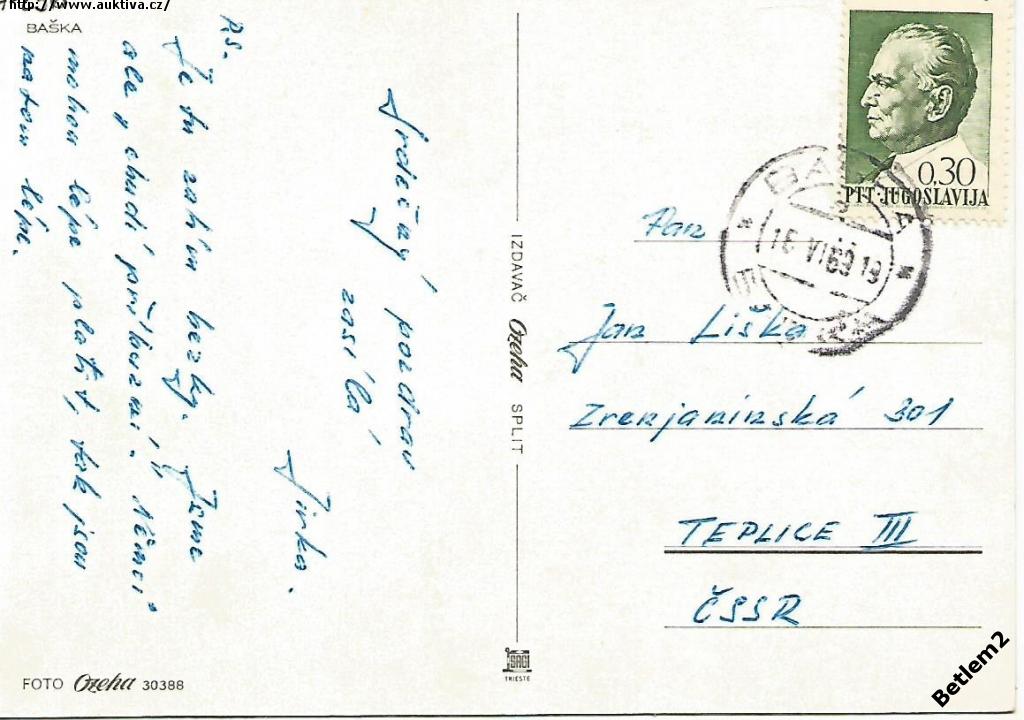 http://www.auktiva.cz/
BAŠKA
Srdečný pozdrav
zasílá
Jirka.
P.S.
Je tu zatím hezky. Jsme
ale „chudí příbuzní". Němci
mohou lépe platit, tak jsou
na tom lépe.
IZDAVAČ Ozeha SPLIT
0,30
PTT·JUGOSLAVIJA
16 VI 69 19
Pan
Jan Liška
Zrenjaninská 301
TEPLICE III
ČSSR
SAGI
TRIESTE
FOTO Ozeha 30388
Betlem2